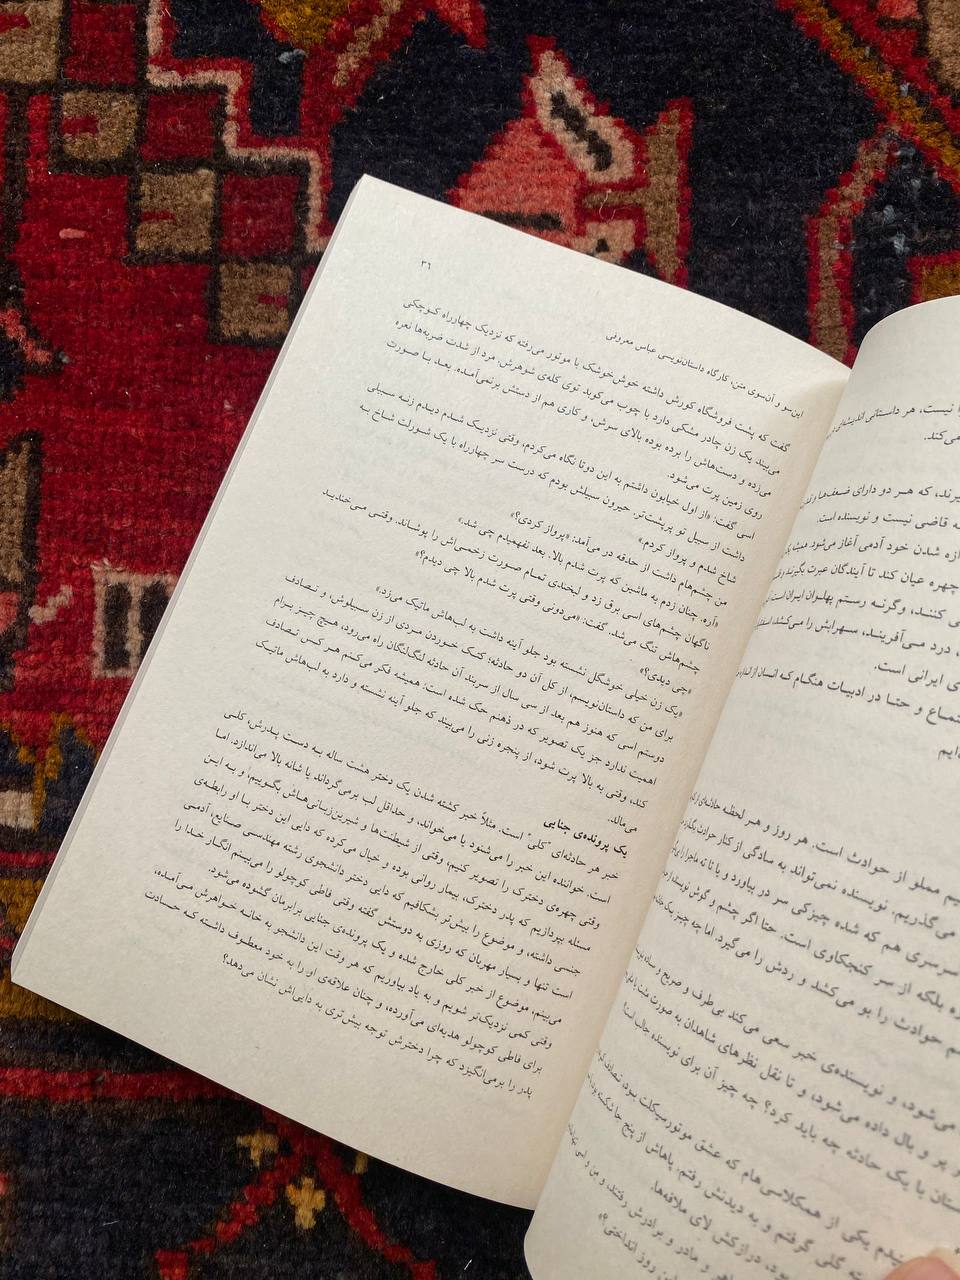 ۳۶
این‌سو و آن‌سوی متن، کارگاه داستان‌نویسی عباس معروفی
گفت که پشت فروشگاه کورش داشته خوش‌خوشک با موتور می‌رفته که نزدیک چهارراه کوچکی
می‌بیند یک زن چادر مشکی دارد با چوب می‌کوبد توی کله‌ی شوهرش. مرد از شدت ضربه‌ها نعره
می‌زده و دست‌هاش را برده بوده بالای سرش، و کاری هم از دستش برنمی‌آمده. بعد با صورت
روی زمین پرت می‌شود.
اسی گفت: «از اول خیابون داشتم به این دوتا نگاه می‌کردم، وقتی نزدیک شدم دیدم زنه سبیلی
داشت از سبیل تو پرپشت‌تر. حیرون سبیلش بودم که درست سر چهارراه با یک شورلت شاخ به
شاخ شدم و پرواز کردم.»
من چشم‌هام داشت از حدقه در می‌آمد: «پرواز کردی؟»
«آره. چنان زدم به ماشین که پرت شدم بالا. بعد نفهمیدم چی شد.»
ناگهان چشم‌های اسی برق زد و لبخندی تمام صورت زخمی‌اش را پوشاند. وقتی می‌خندید
چشم‌هاش تنگ می‌شد. گفت: «می‌دونی وقتی پرت شدم بالا چی دیدم؟»
«چی دیدی؟»
«یک زن خیلی خوشگل نشسته بود جلو آینه داشت به لب‌هاش ماتیک می‌زد.»
برای من که داستان‌نویسم، از کل آن دو حادثه؛ کتک خوردن مردی از زن سبیلوش، و تصادف
دوستم اسی که هنوز هم بعد از سی سال از سربند آن حادثه لنگ‌لنگان راه می‌رود، هیچ چیز برام
اهمیت ندارد جز یک تصویر که در ذهنم حک شده است: همیشه فکر می‌کنم هر کس تصادف
کند، وقتی به بالا پرت شود، از پنجره زنی را می‌بیند که جلو آینه نشسته و دارد به لب‌هاش ماتیک
می‌مالد.
یک پرونده‌ی جنایی
خبر هر حادثه‌ای "کلی" است. مثلاً خبر کشته شدن یک دختر هشت ساله به دست پدرش، کلی
است. خواننده این خبر را می‌شنود یا می‌خواند، و حداقل لب برمی‌گرداند یا شانه بالا می‌اندازد. اما
وقتی چهره‌ی دخترک را تصویر کنیم، وقتی از شیطنت‌ها و شیرین‌زبانی‌هاش بگوییم؛ و به این
مسئله بپردازیم که پدر دخترک، بیمار روانی بوده و خیال می‌کرده که دایی این دختر با او رابطه‌ی
جنسی داشته، و موضوع را بیش‌تر بشکافیم که دایی دختر دانشجوی رشته مهندسی صنایع، آدمی
است تنها و بسیار مهربان که روزی به دوستش گفته وقتی فاطی کوچولو را می‌بینم انگار خدا را
می‌بینم، موضوع از خبر کلی خارج شده و یک پرونده‌ی جنایی برابرمان گشوده می‌شود.
وقتی کمی نزدیک‌تر شویم و به یاد بیاوریم که هر وقت این دانشجو به خانه خواهرش می‌آمده،
برای فاطی کوچولو هدیه‌ای می‌آورده، و چنان علاقه‌ی او را به خود معطوف داشته که حسادت
پدر را برمی‌انگیزد که چرا دخترش توجه بیش‌تری به دایی‌اش نشان می‌دهد؟
نیست، هر داستانی
می‌کند.
که هر دو دارای ضعف‌ها و
قاضی نیست و نویسنده است.
شدن خود آدمی آغاز می‌شود.
چهره عیان کند تا آیندگان عبرت بگیرند
کنند، وگرنه رستم پهلوان ایران است
درد می‌آفریند، سهرابش را می‌کشد،
ایرانی است.
و حتا در ادبیات هنگام که انسان از
مملو از حوادث است. هر روز و هر لحظه حادثه‌ای
می‌گذریم. نویسنده نمی‌تواند به سادگی از کنار حوادث
سرسری هم که شده چیزکی سر در بیاورد و یا تا ته ماجرا
بلکه از سر کنجکاوی است. حتا اگر چشم و گوش نویسنده
حوادث را بو می‌کشد و ردش را می‌گیرد. اما چه چیز
می‌شود، و نویسنده‌ی خبر سعی می‌کند بی طرف و صریح و
پر و بال داده می‌شود، و تا نقل نظرهای شاهدان به صورت
یا یک حادثه چه باید کرد؟ چه چیز آن برای نویسنده جالب است؟
یکی از همکلاسی‌هام که عشق موتورسیکلت بود،
گلی گرفتم و به دیدنش رفتم. پاهاش از پنج جا شکسته
درازکش لای ملافه‌ها.
و مادر و برادرش رفتند، و من و اسی
روز انداختی؟»